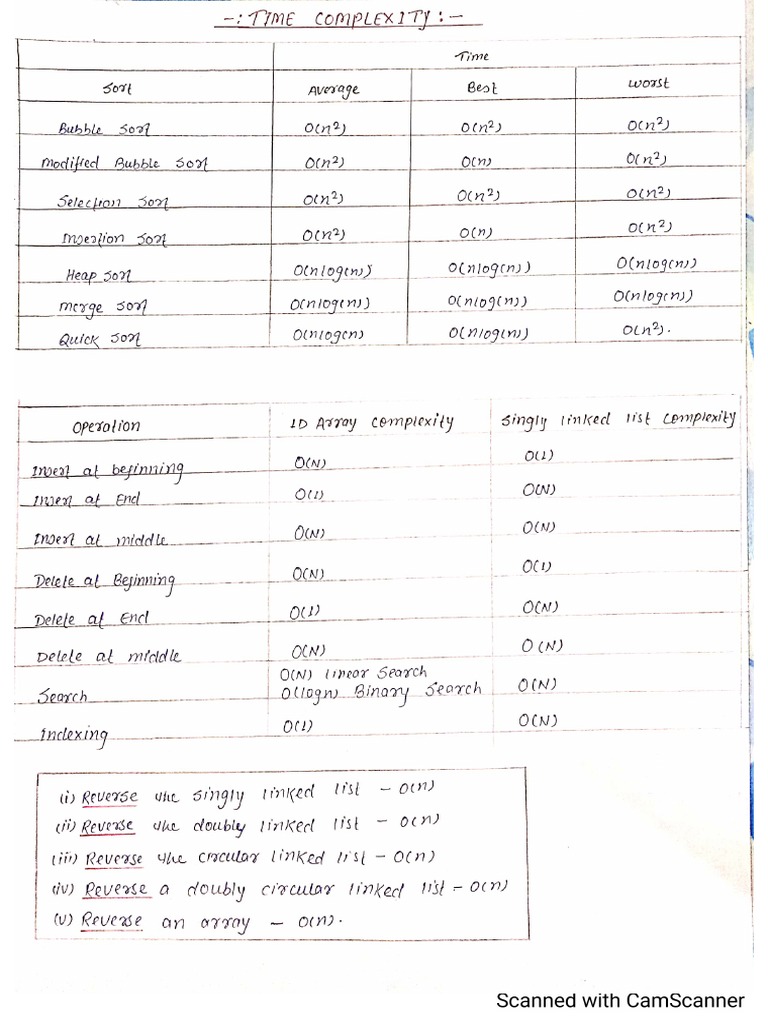 -: TIME COMPLEXITY :-
Time
Sort Average Best Worst
Bubble Sort O(n²) O(n²) O(n²)
Modified Bubble Sort O(n²) O(n) O(n²)
Selection Sort O(n²) O(n²) O(n²)
Insertion Sort O(n²) O(n) O(n²)
Heap Sort O(nlog(n)) O(nlog(n)) O(nlog(n))
Merge Sort O(nlog(n)) O(nlog(n)) O(nlog(n))
Quick Sort O(nlog(n) O(nlog(n)) O(n²).
Operation 1D Array Complexity Singly linked list Complexity
Insert at beginning O(N) O(1)
Insert at End O(1) O(N)
Insert at middle O(N) O(N)
Delete at Beginning O(N) O(1)
Delete at End O(1) O(N)
Delete at middle O(N) O(N)
O(N) Linear Search
Search O(logn) Binary Search O(N)
Indexing O(1) O(N)
(i) Reverse the singly linked list - O(n)
(ii) Reverse the doubly linked list - O(n)
(iii) Reverse the circular linked list - O(n)
(iv) Reverse a doubly circular linked list - O(n)
(v) Reverse an array - O(n).
Scanned with CamScanner